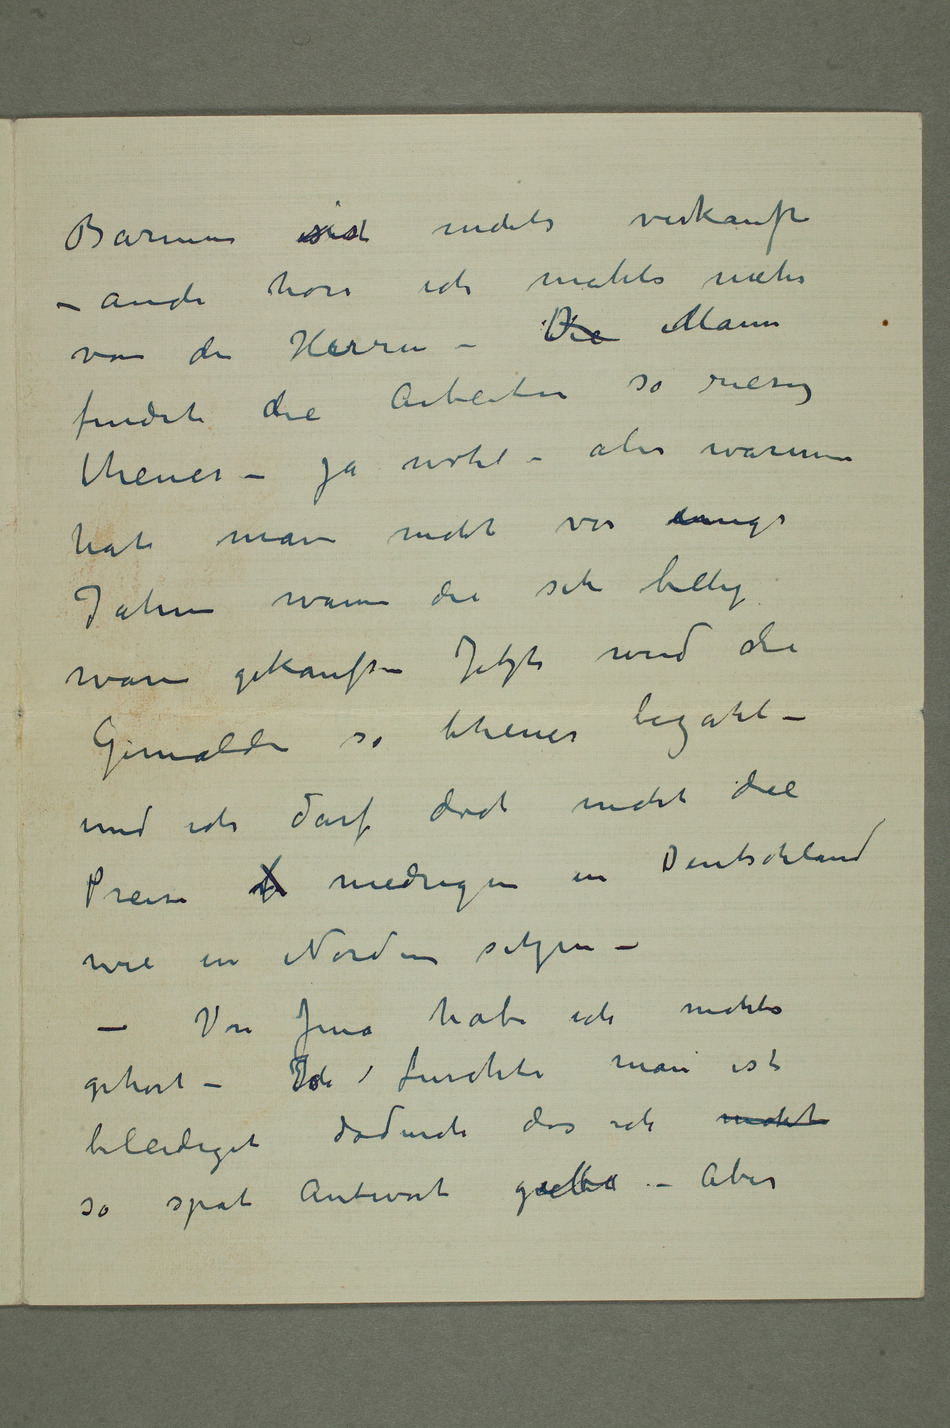 Barmen ist nichts verkauft
– auch hore ich nichts mehr
von den Herren – Die Mann
findet die Arbeiten so riesig
theuer – ja wohl – aber warum
hat man nicht vor einige
Jahren wann die sehr billig
waren gekauft – Jetzt wird die
Gemälde so theuer bezahlt –
und ich darf doch nicht die
Preise niedrigen in Deutschland
wie in Norden setzen –
– Von Jena habe ich nichts
gehort – Ich furchte man ist
beleidiget dadurch das ich nicht
so spat Antwort gebe – Aber